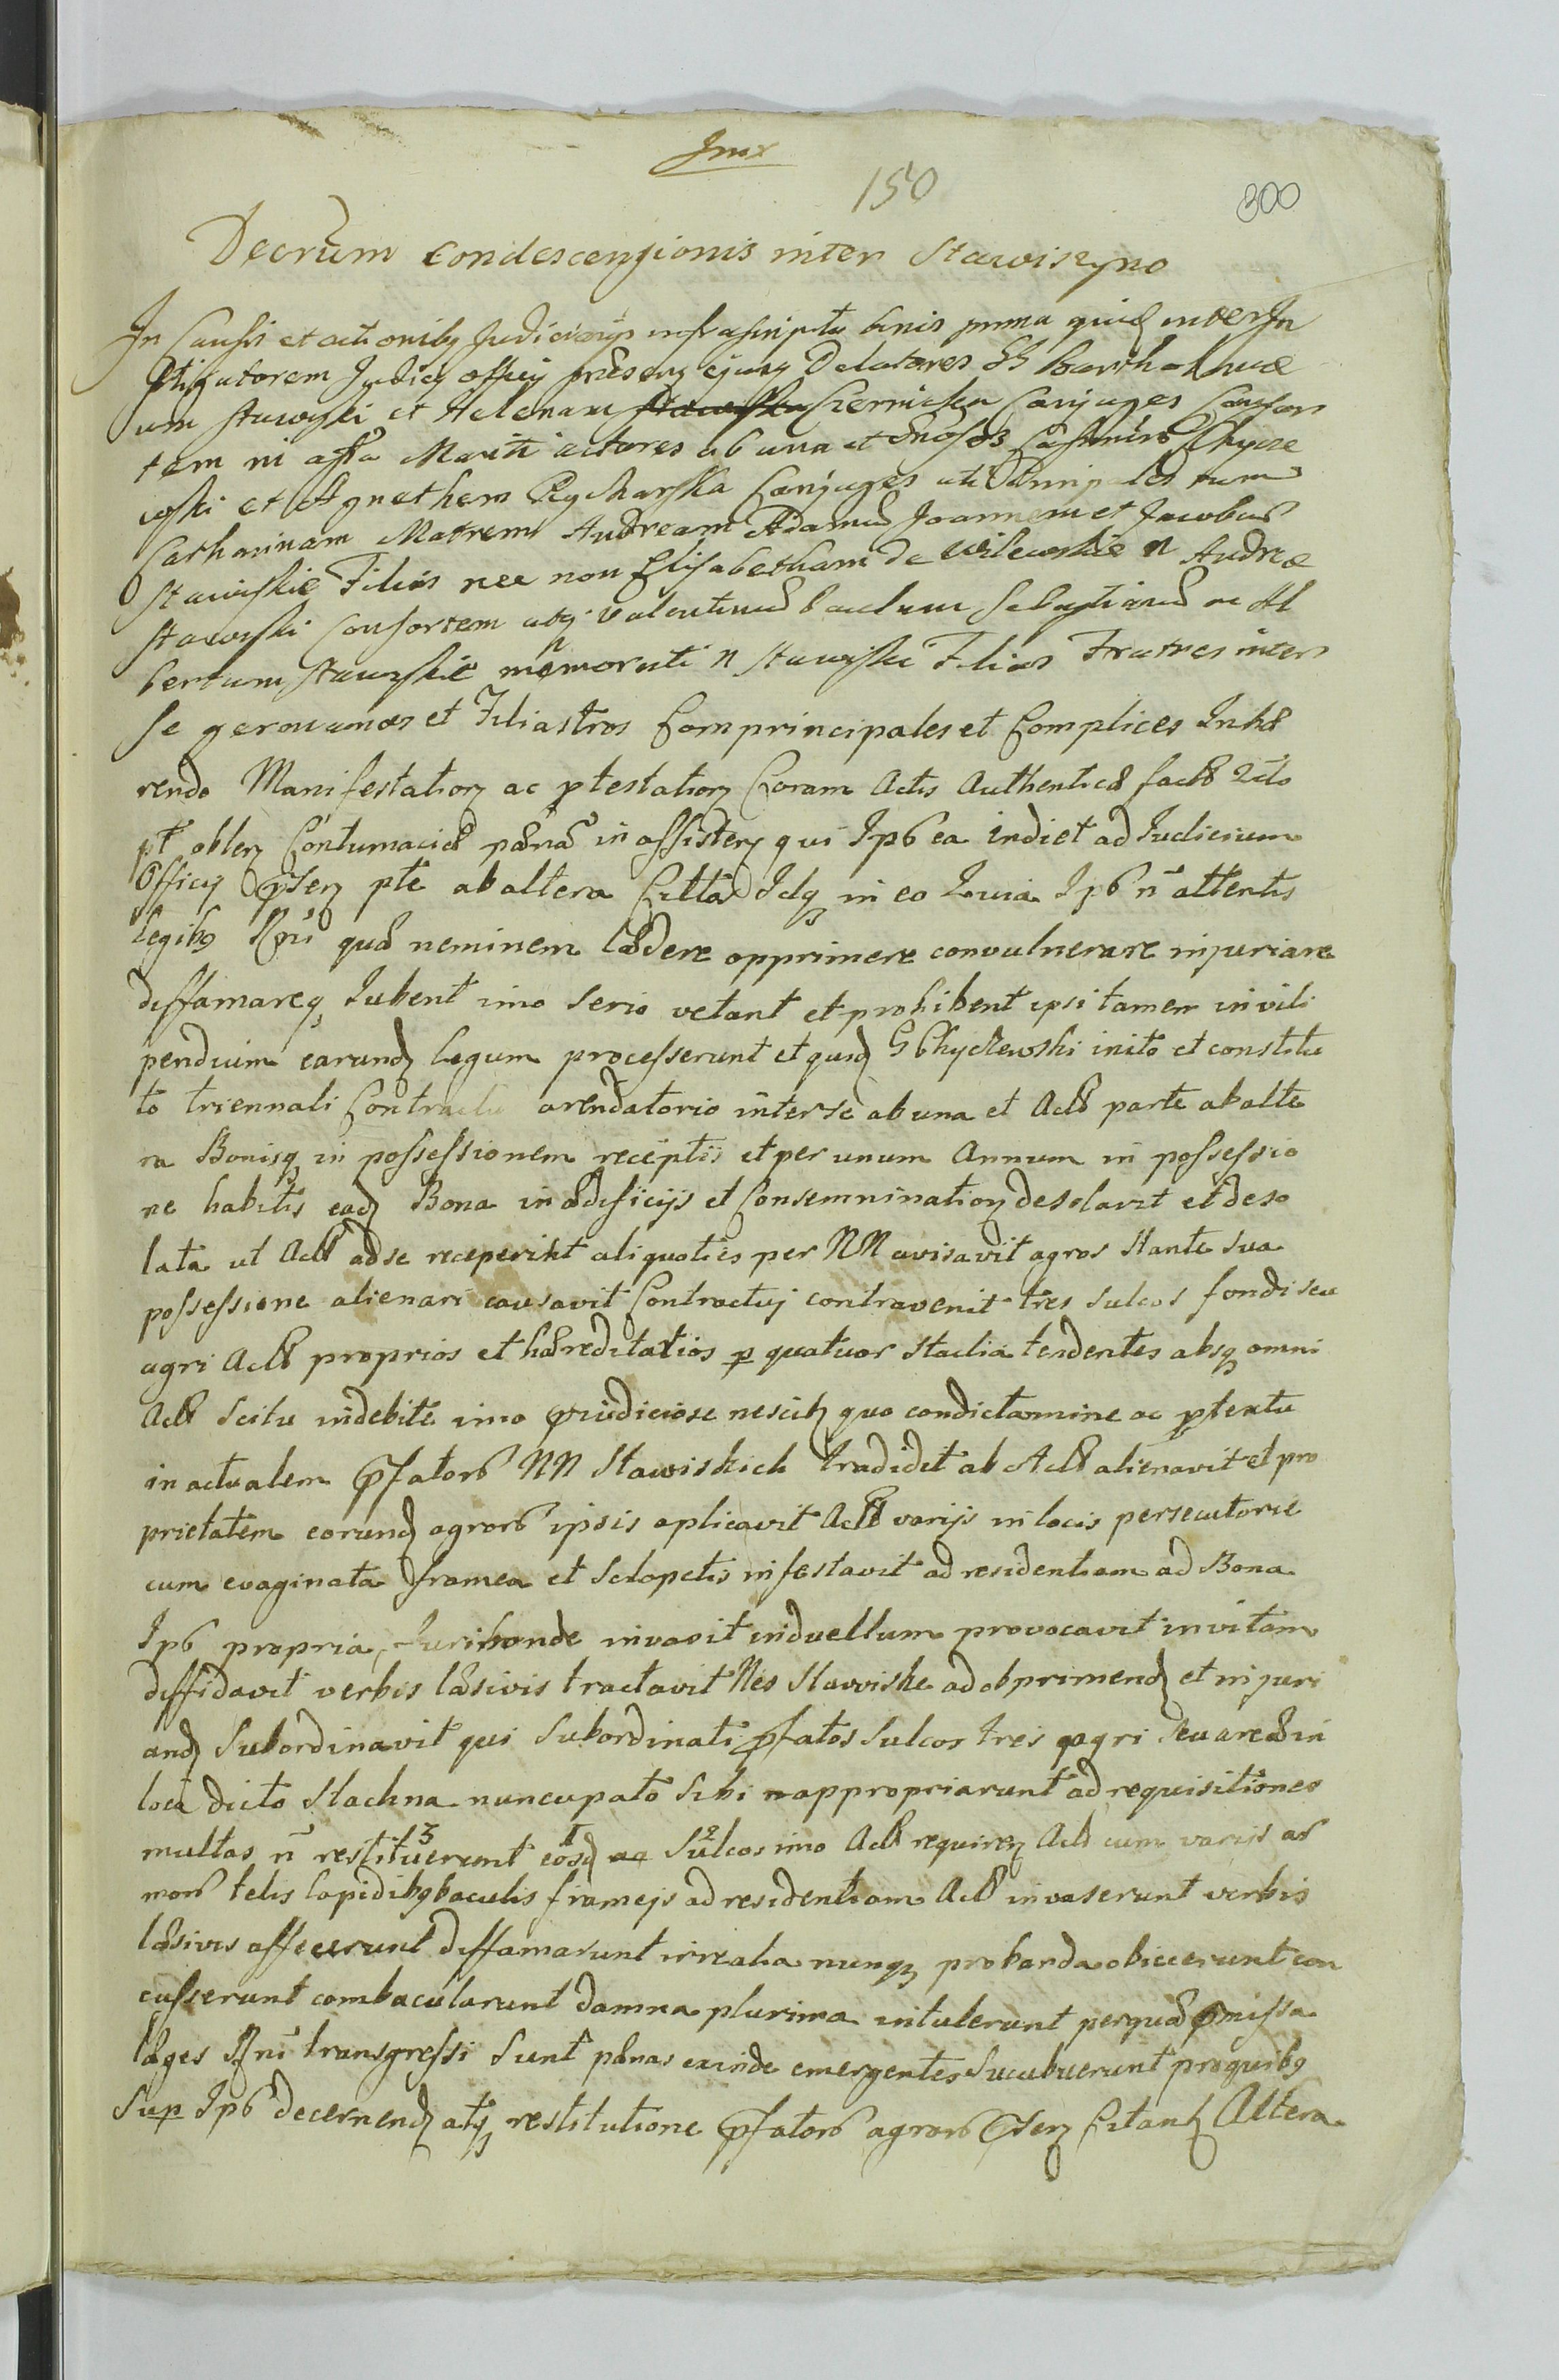 Jnox
150
300
Decrūm Condescensionis inter Stawiszyno
In Causis et actionibq Judiciarijs infrascriptis binis prima quid inter In
stigatorem Judicij officij pñdseng ejusq Delatores GG Bartholomæ
um Stawiski et Helenam Czernicka Conjuges Consor
tem in assã Mariti actores ab una et Gnosos Casimirũ Chycze
wski et Agnethem Conjuges uti Principales tum
Catharinam Matrem Andream Adamũ Joannem et Jacobũ
Stawiskie Filios nec non Elisabetham de Wilewskie N Andreæ
Stawiski Consortem atq Valentinũ Paulum Sebastianũ ac Al
bertum Stawskie memorati N Stawiski Filios Fratres inter
se germanos et Filiastros Comprincipales et Complices Inhæ
rendo Manifestation ac ptestation Coram Actis Authenticis factæ
pt oblen Contumaciæ pænã in assisten qui Ipõ ea indiet ad Judicium
Officij pñsen pte ab altera Citta Idq in eo Ipõ ñ attentis
legibq Rñi quæ neminem lædere opprimere convulnerare injuriare
diffamareq Jubent imo serio vetant et prohibent ipsi tamen in vili
pendium earund legum processerunt et quid G Chyczewski inito et constitu
to triennali Contractu arendatorio inter se ab una et Actõ parte ab alte
ra Bonisq in possessionem receptis et per unum Annum in possessio
ne habitis ead Bona in ædificijs et Consemnination desolavit et deso
lata ut Actõ ad se reciperint aliquoties per NN avisavit agros Stante sua
possessione alienari causavit Contractuj contravenit tres sulcos fondi seu
agri Actõ proprios et hæreditatios p quatuor Stadia tendentes absq omni
Actõ Scitu indebite imo pñudiciose nescit quo condictamine ac ptextu
in actualem pñfatorũ NN Stawiskich tradidit ab Actõ alienavit et pro
prietatem eorund agrorũ ipsis aplicavit Actõ varijs in locis persecutorie
cum evaginata framea et Sclopetis infestavit ad residentiam ad Bona
Ipõ propria, furibonde invasit in duellum provocavit in vitam
diffidavit verbis læsivis tractavit Nes Stawiskie ad obprimend et injuri
and Subordinavit qui Subordinati pñfatos Sulcos tres agri seu areæ in
loco dicto Stachna nuncupato sibi appropriarunt ad requisitiones
multas ñ restituerunt eosd Sulcos imo Actõ requiren Actõ cum variis ar
morũ telis lapidibq baculis frameis ad residentiam Actõ invaserunt verbis
læsivis affecerunt diffamarunt irrealia nunqz probanda obiecerunt con
cusserunt combacularunt damna plurima intulerunt perquæ pñmissa
læges Rñi transgressi sunt pænas exinde emergentes Sucubuerunt proquibq
Sup Ipõ decernend atq restitutione pñfatorũ agrorũ pñsen Citant Altera